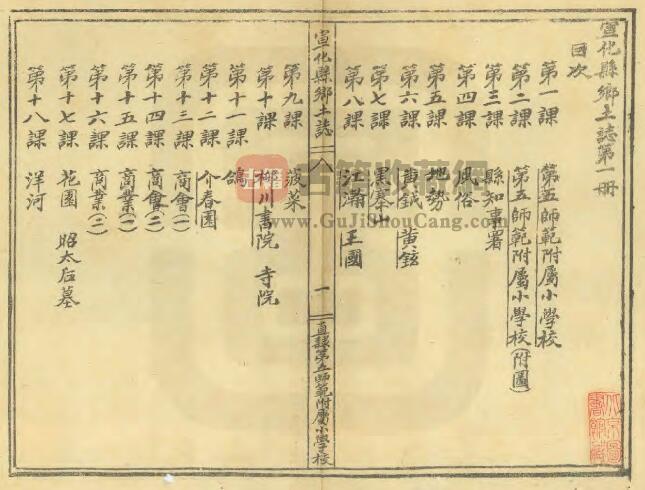 宣化縣鄉土誌第一冊
目次
第一課 第五師範附屬小學校
第二課 第五師範附屬小學校(附圖)
第三課 縣知事署
第四課 風俗
第五課 地勢
第六課 黃鉞 黃鉉
第七課 黑峯山
第八課 江滿 王國
宣化縣鄉土誌
八
一
直隸第五師範附屬小學校
第九課 菠菜
第十課 柳川書院 寺院
第十一課 鴿
第十二課 介春園
第十三課 商會(一)
第十四課 商會(二)
第十五課 商業(一)
第十六課 商業(二)
第十七課 花園 昭太后墓
第十八課 洋河
古籍收藏網
www.GuJiShouCang.com